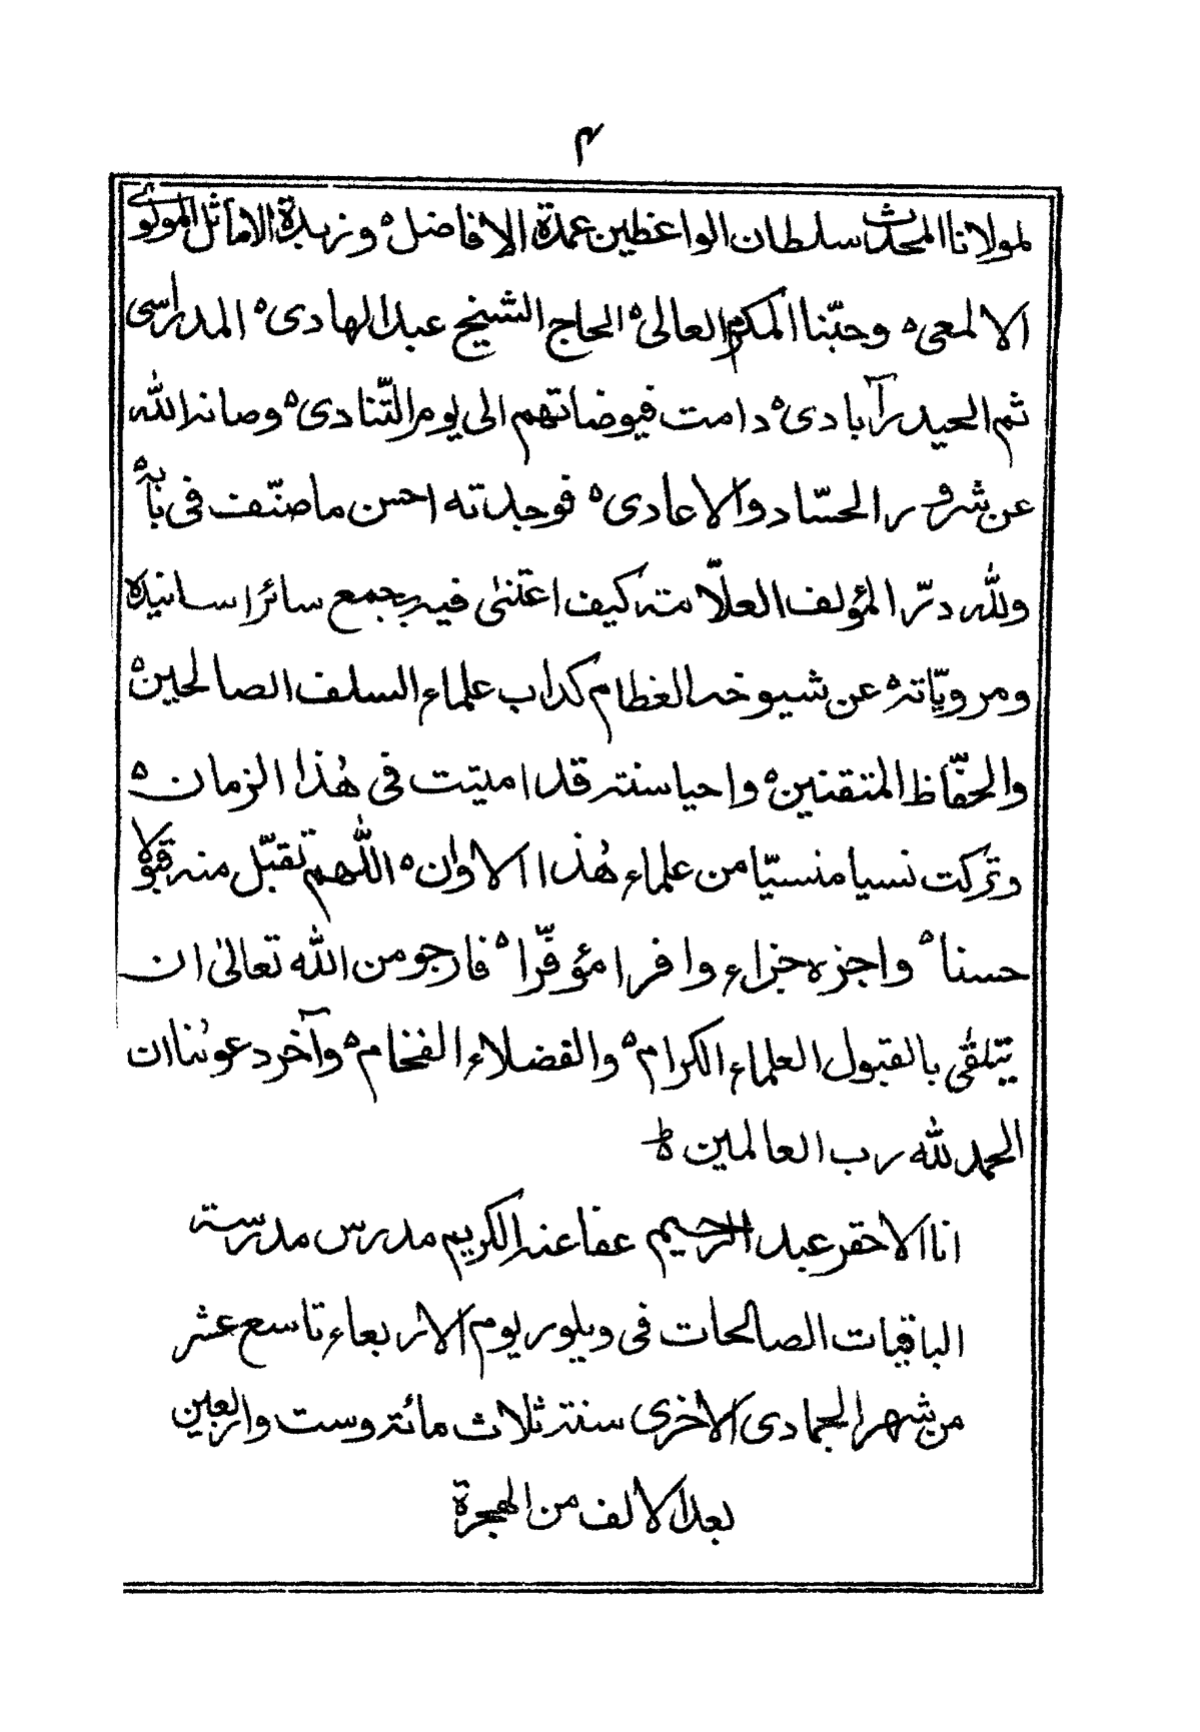 ۴
لمولانا المحدث سلطان الواعظین عمدة الافاضل ہ وزبدة الاماثل المولوی
الالمعی ہ وحبّنا المکرم العالی ہ الحاج الشیخ عبد الهادی ہ المدراسی
ثم الحیدرآبادی ہ دامت فیوضاتهم الی یوم التّنادی ہ وصانه الله
عن شرور الحسّاد والاعادی ہ فوجدته احسن ما صنّف فی بابه ہ
ولله درّ المؤلف العلّامة کیف اعتنیٰ فیه بجمع سائر اسانیده
ومرویّاته ہ عن شیوخه العظام کداب علماء السلف الصالحین ہ
والحفّاظ المتقنین ہ واحیا سنة قد امیتت فی هٰذا الزمان ہ
وترکت نسیا منسیّا من علماء هٰذا الاوان ہ اللّٰهم تقبّل منه قبولا
حسنا ہ واجزه جزاء وافرا مؤفّرا ہ فارجو من الله تعالیٰ ان
یتلقی بالقبول العلماء الکرام ہ والفضلاء الفخام ہ وآخر دعوٰننا ان
الحمد لله رب العالمین ہ ط
انا الاحقر عبد الرحیم عفا عنه الکریم مدرس مدرسة
الباقیات الصالحات فی ویلور یوم الاربعاء تاسع عشر
من شهر الجمادی الاخری سنة ثلاث مائة وست واربعین
بعد الالف من الهجرة